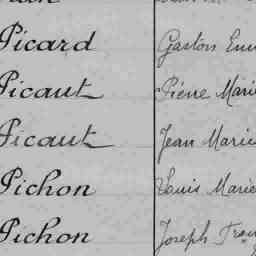 Picard Gaston
Picaut Pierre Marie
Picaut Jean Marie
Pichon Louis Marie
Pichon Joseph